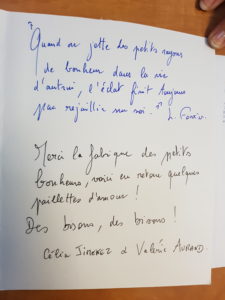 "Quand on jette des petits rayons
de bonheur dans la vie
d'autrui, l'éclat finit toujours
par rejaillir sur soi."
Merci la fabrique des petits
bonheurs, voici en retour quelques
paillettes d'amour !
Des bisous, des bisous !
Célia JIMENEZ & Valérie